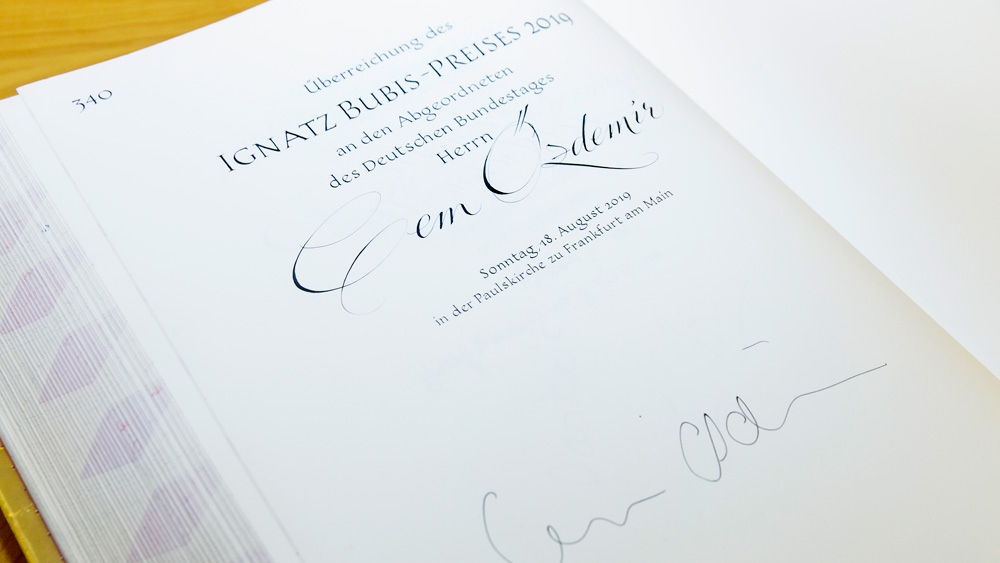 340
Überreichung des
IGNATZ BUBIS-PREISES 2019
an den Abgeordneten
des Deutschen Bundestages
Herrn
Cem Özdemir
Sonntag, 18. August 2019
in der Paulskirche zu Frankfurt am Main